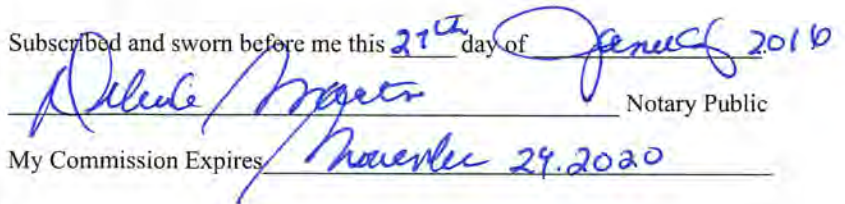 Subscribed and sworn before me this 27th day of January 2016
Notary Public
My Commission Expires November 29.2020